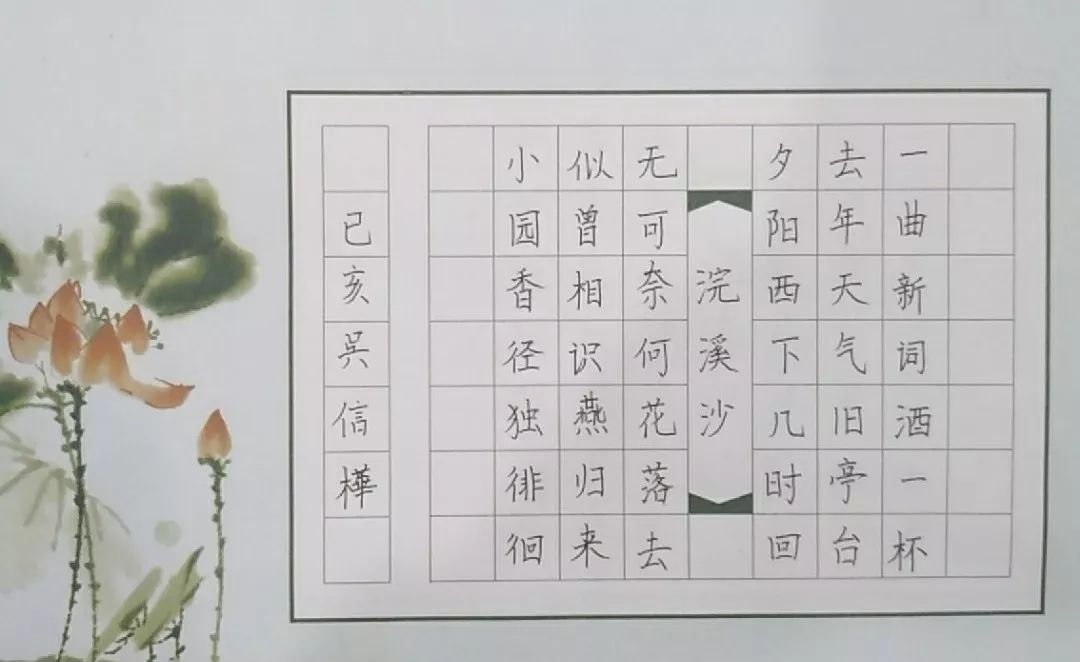 一曲新词酒一杯
去年天气旧亭台
夕阳西下几时回
浣溪沙
无可奈何花落去
似曾相识燕归来
小园香径独徘徊
已亥吴信樺